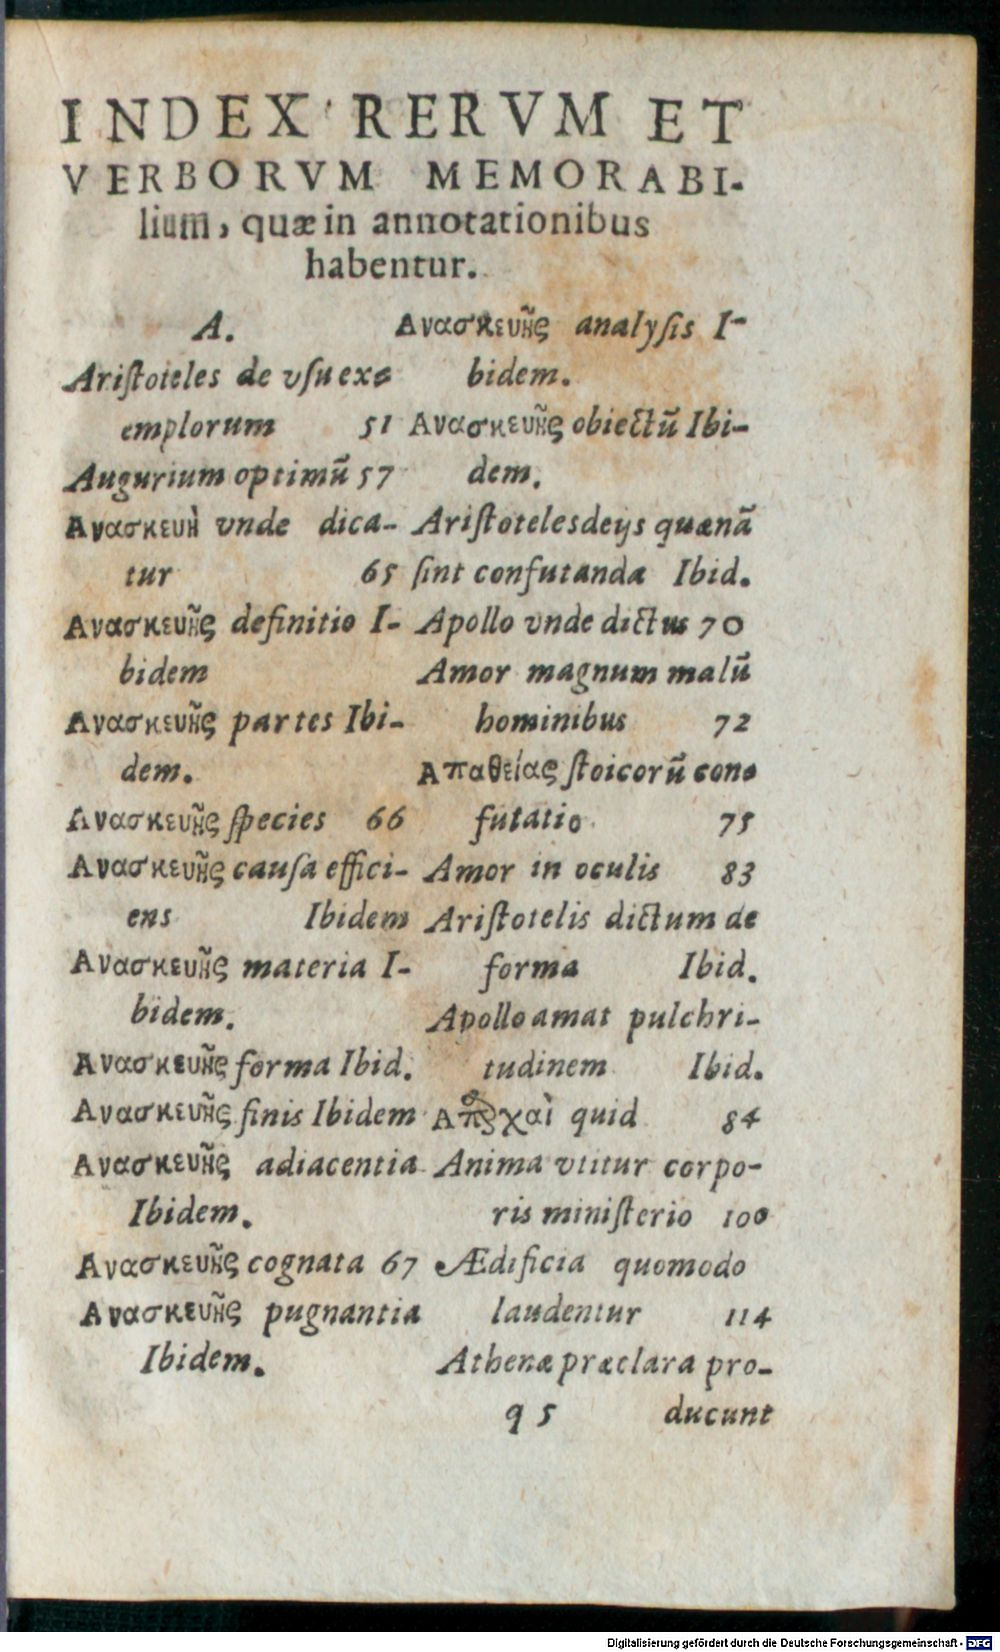 INDEX RERVM ET
VERBORVM MEMORABI-
lium, quæ in annotationibus
habentur.
A.
Ariſtoteles de vſu ex-
emplorum 51
Augurium optimũ 57
Ανασκευὴ vnde dica-
tur 65
Ανασκευῆς definitio I-
bidem
Ανασκευῆς partes Ibi-
dem.
Ανασκευῆς ſpecies 66
Ανασκευῆς cauſa effici-
ens Ibidem
Ανασκευῆς materia I-
bidem.
Ανασκευῆς forma Ibid.
Ανασκευῆς finis Ibidem
Ανασκευῆς adiacentia
Ibidem.
Ανασκευῆς cognata 67
Ανασκευῆς pugnantia
Ibidem.
Ανασκευῆς analyſis I-
bidem.
Ανασκευῆς obiectũ Ibi-
dem.
Ariſtoteles de ijs quænã
ſint confutanda Ibid.
Apollo vnde dictus 70
Amor magnum malũ
hominibus 72
Απαθείας ſtoicorũ con-
futatio 75
Amor in oculis 83
Ariſtotelis dictum de
forma Ibid.
Apollo amat pulchri-
tudinem Ibid.
quid 84
Anima vtitur corpo-
ris miniſterio 100
Ædificia quomodo
laudentur 114
Athenæ præclara pro-
q 5 ducunt
Digitalisierung gefördert durch die Deutsche Forschungsgemeinschaft - DFG